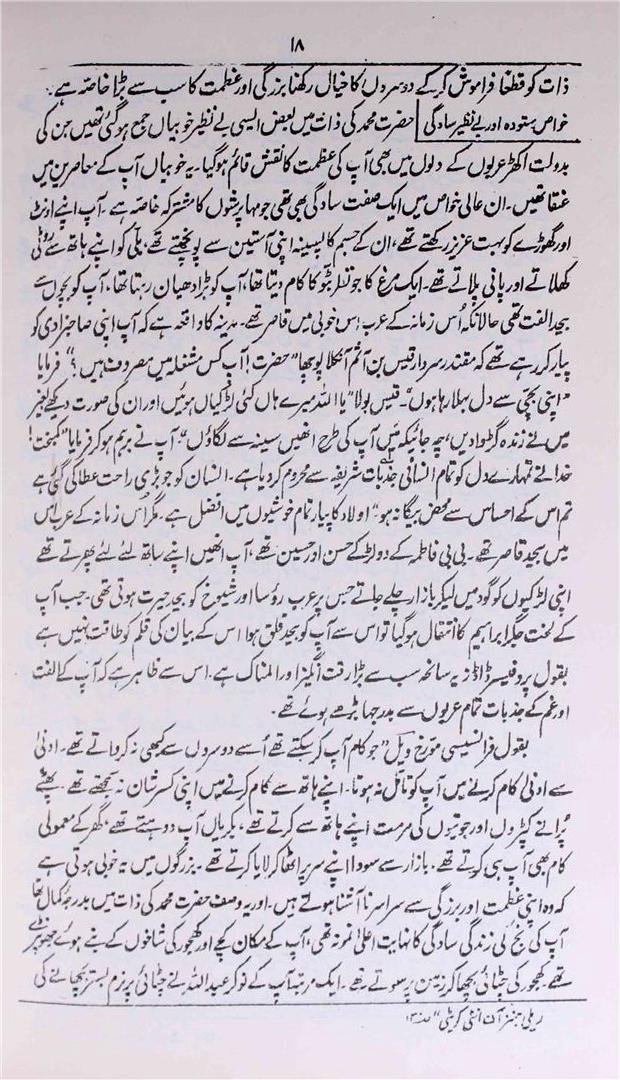 ۱۸
ذات کو قطعاً فراموش کر کے دوسروں کا خیال رکھنا بزرگی اور عظمت کا سب سے بڑا خاصہ ہے۔
خواص ستودہ اور بے نظیر سادگی | حضرت محمد کی ذات میں بعض ایسی بے نظیر خوبیاں جمع ہو گئی تھیں جن کی
بدولت اکھڑ عربوں کے دلوں میں بھی آپ کی عظمت کا نقش قائم ہو گیا۔ یہ خوبیاں آپ کے معاصرین میں
عنقا تھیں۔ ان عالی خواص میں ایک صفت سادگی بھی تھی جو مہا پرشوں کا مشترکہ خاصہ ہے۔ آپ اپنے اونٹ
اور گھوڑے کو بہت عزیز رکھتے تھے، ان کے جسم کا پسینہ اپنی آستین سے پونچھتے تھے، بلی کو اپنے ہاتھ سے روٹی
کھلاتے اور پانی پلاتے تھے۔ ایک مرغ کا جو نذر بتو کا کام دیتا تھا، آپ کو بڑا دھیان رہتا تھا، آپ کو بچوں سے
بیحد الفت تھی حالانکہ اُس زمانہ کے عرب اس خوبی میں قاصر تھے۔ مدینہ کا واقعہ ہے کہ آپ اپنی صاحبزادی کو
پیار کر رہے تھے کہ مقتدر سردار قیس بن آثم آنکلا پوچھا "حضرت! آپ کس مشغلہ میں مصروف ہیں؟" فرمایا
"اپنی بچی سے دل بہلا رہا ہوں"۔ قیس بولا "یا اللہ میرے ہاں کئی لڑکیاں ہوئیں اور ان کی صورت دیکھے بغیر
میں نے زندہ گڑوا دیں، چہ جائیکہ میں آپ کی طرح انھیں سینہ سے لگاؤں"۔ آپ نے برہم ہو کر فرمایا "کمبخت!
خدا نے تمہارے دل کو تمام انسانی جذبات شریفہ سے محروم کر دیا ہے۔ انسان کو جو بڑی راحت عطا کی گئی ہے
تم اس کے احساس سے محض بیگانہ ہو" اولاد کا پیار تمام خوشیوں میں افضل ہے۔ مگر اُس زمانہ کے عرب اس
میں بیحد قاصر تھے۔ بی بی فاطمہ کے دو لڑکے حسن اور حسین تھے، آپ انھیں اپنے ساتھ لئے لئے پھرتے تھے
اپنی لڑکیوں کو گود میں لیکر بازار چلے جاتے جس پر عرب رؤسا اور شیوخ کو بیحد حیرت ہوتی تھی۔ جب آپ
کے لخت جگر ابراہیم کا انتقال ہو گیا تو اس سے آپ کو بیحد قلق ہوا اس کے بیان کی قلم کو طاقت نہیں ہے
بقول پروفیسر ڈاڈز یہ سانحہ سب سے بڑا رقت انگیز اور المناک ہے۔ اس سے ظاہر ہے کہ آپ کے الفت
اور غم کے جذبات تمام عربوں سے بدرجہا بڑھے ہوئے تھے۔
بقول فرانسیسی مورخ ویل "جو کام آپ کر سکتے تھے اُسے دوسروں سے کبھی نہ کرواتے تھے۔ ادنیٰ
سے ادنیٰ کام کرنے میں آپ کو تامل نہ ہوتا۔ اپنے ہاتھ سے کام کرنے میں اپنی کسر شان نہ سمجھتے تھے۔ پھٹے
پُرانے کپڑوں اور جوتیوں کی مرمت اپنے ہاتھ سے کرتے تھے، بکریاں آپ دوہتے تھے، گھر کے معمولی
کام بھی آپ ہی کرتے تھے۔ بازار سے سودا اپنے سر پر اٹھا کر لایا کرتے تھے۔ بزرگوں میں یہ خوبی ہوتی ہے
کہ وہ اپنی عظمت اور بزرگی سے سراسر نا آشنا ہوتے ہیں۔ اور یہ وصف حضرت محمد کی ذات میں بدرجہ کمال تھا
آپ کی نج کی زندگی سادگی کا نہایت اعلیٰ نمونہ تھی، آپ کے مکان کچے اور کھجور کی شاخوں کے بنے ہوئے جھونپڑے
تھے۔ کھجور کی چٹائی بچھا کر زمین پر سوتے تھے۔ ایک مرتبہ آپ کے نوکر عبداللہ نے چٹائی پر نرم بستر بچھانے کی
ریلی جنز آن انٹی کویٹی" صہ ۱۳